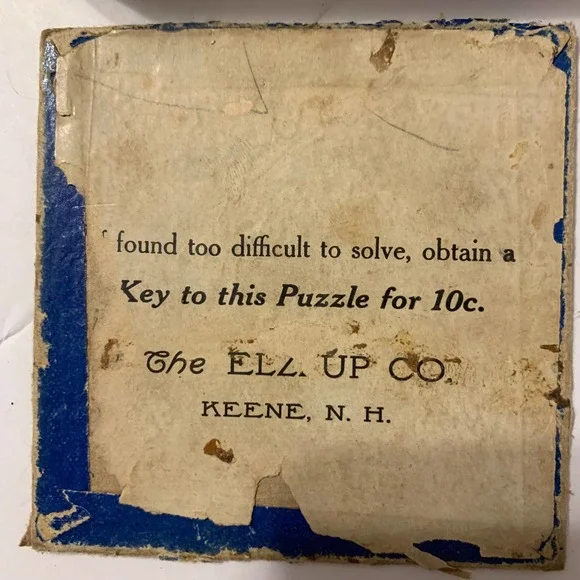 found too difficult to solve, obtain a
Key to this Puzzle for 10c.
The UP CO
KEENE, N. H.